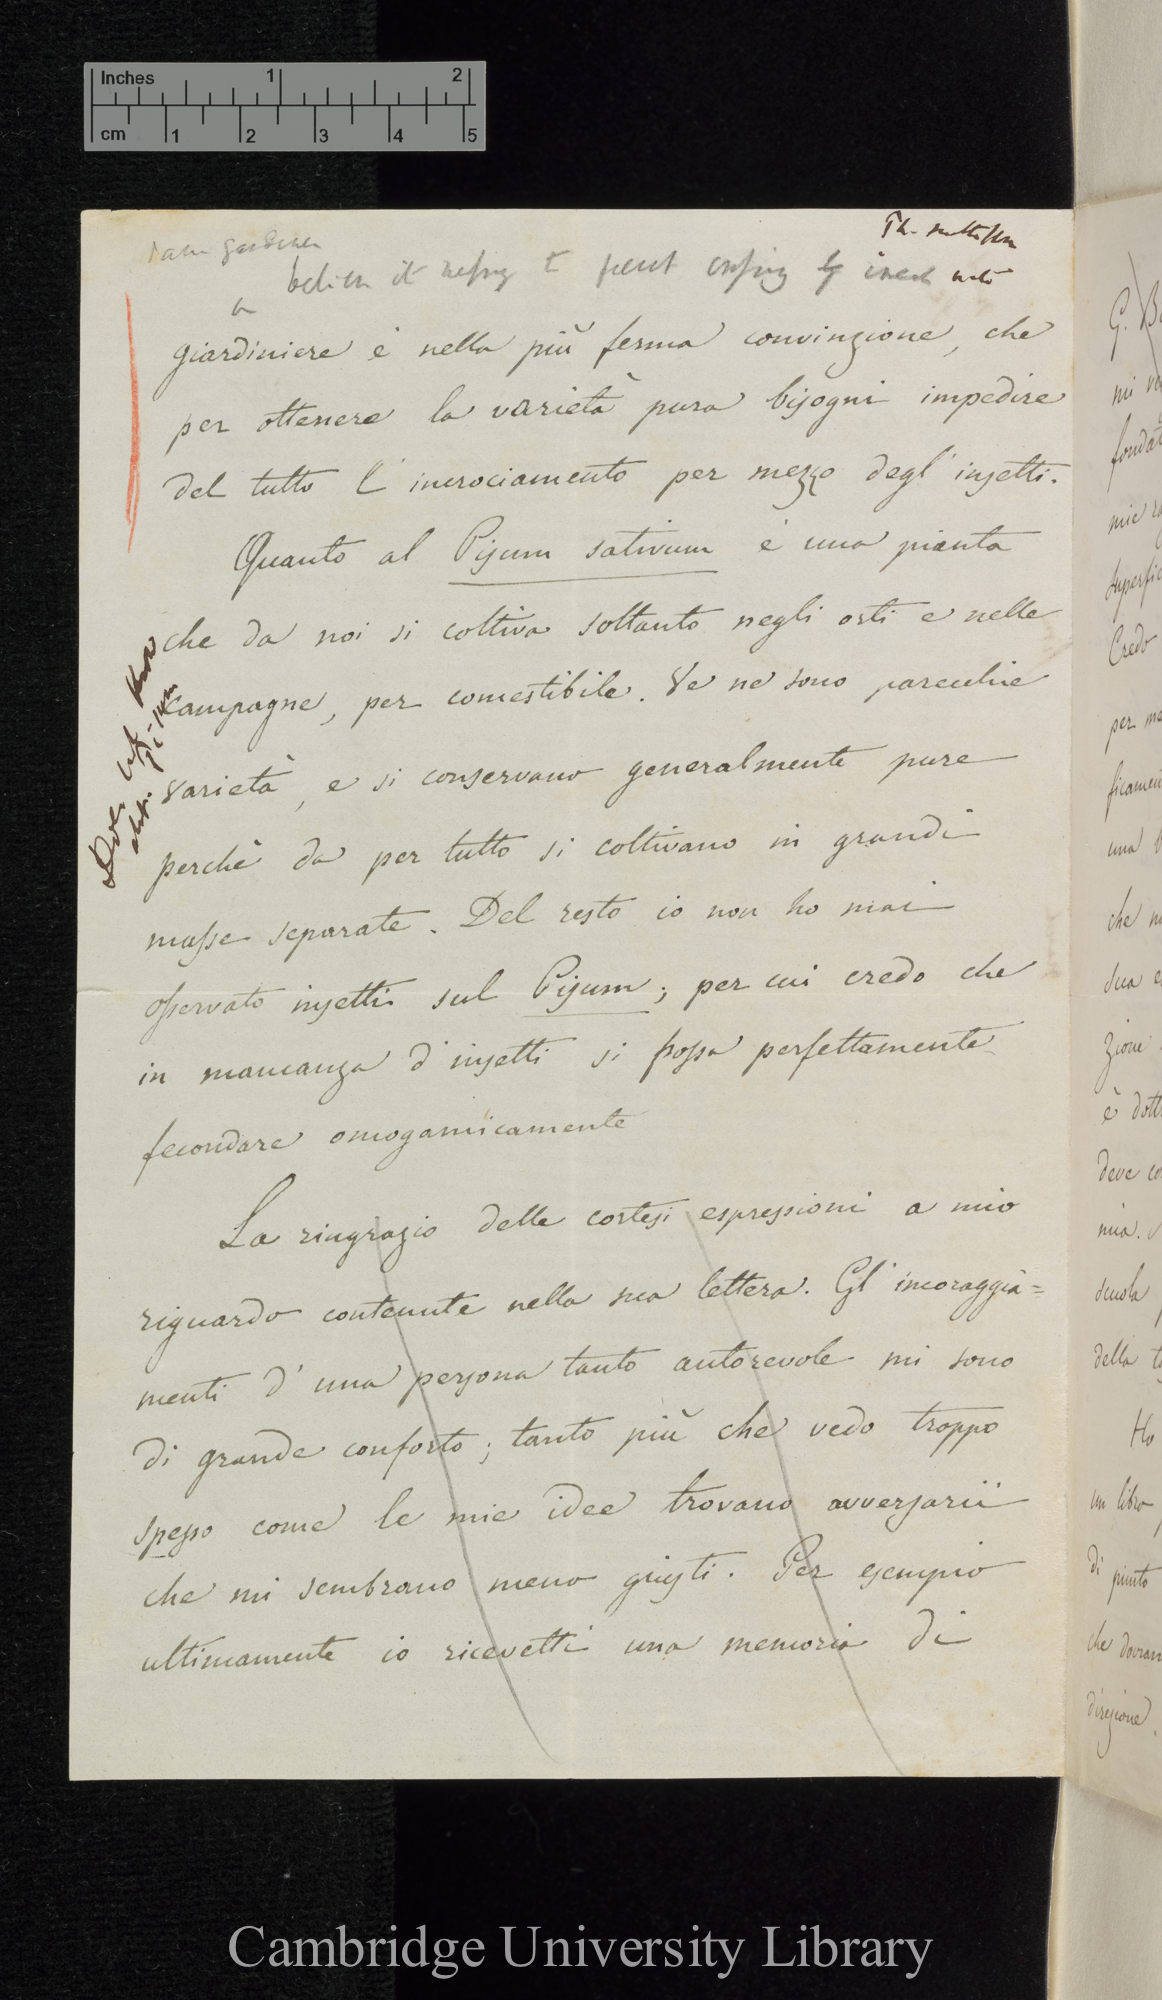 Inches 1 2
cm 1 2 3 4 5
gardener
believe it necessary to prevent crossing by insects
giardiniere è nella più ferma convinzione, che
per ottenere la varietà pura bisogni impedire
del tutto l'incrociamento per mezzo degl'insetti.
Quanto al Pisum sativum è una pianta
che da noi si coltiva soltanto negli orti e nelle
campagne, per comestibile. Ve ne sono parecchie
varietà, e si conservano generalmente pure
perchè da per tutto si coltivano in grandi
masse separate. Del resto io non ho mai
osservato insetti sul Pisum; per cui credo che
in mancanza d'insetti si possa perfettamente
fecondare omogamicamente
La ringrazio delle cortesi espressioni a mio
riguardo contenute nella sua lettera. Gl'incoraggia=
menti d'una persona tanto autorevole mi sono
di grande conforto; tanto più che vedo troppo
spesso come le mie idee trovano avversarii
che mi sembrano meno giusti. Per esempio
ultimamente io ricevetti una memoria di
G.
mi
mie
Credo
per
una
che
sua
zione
è
deve
mia.
scuola
della
Ho
un libro
di punto
che
direzione.
Cambridge University Library